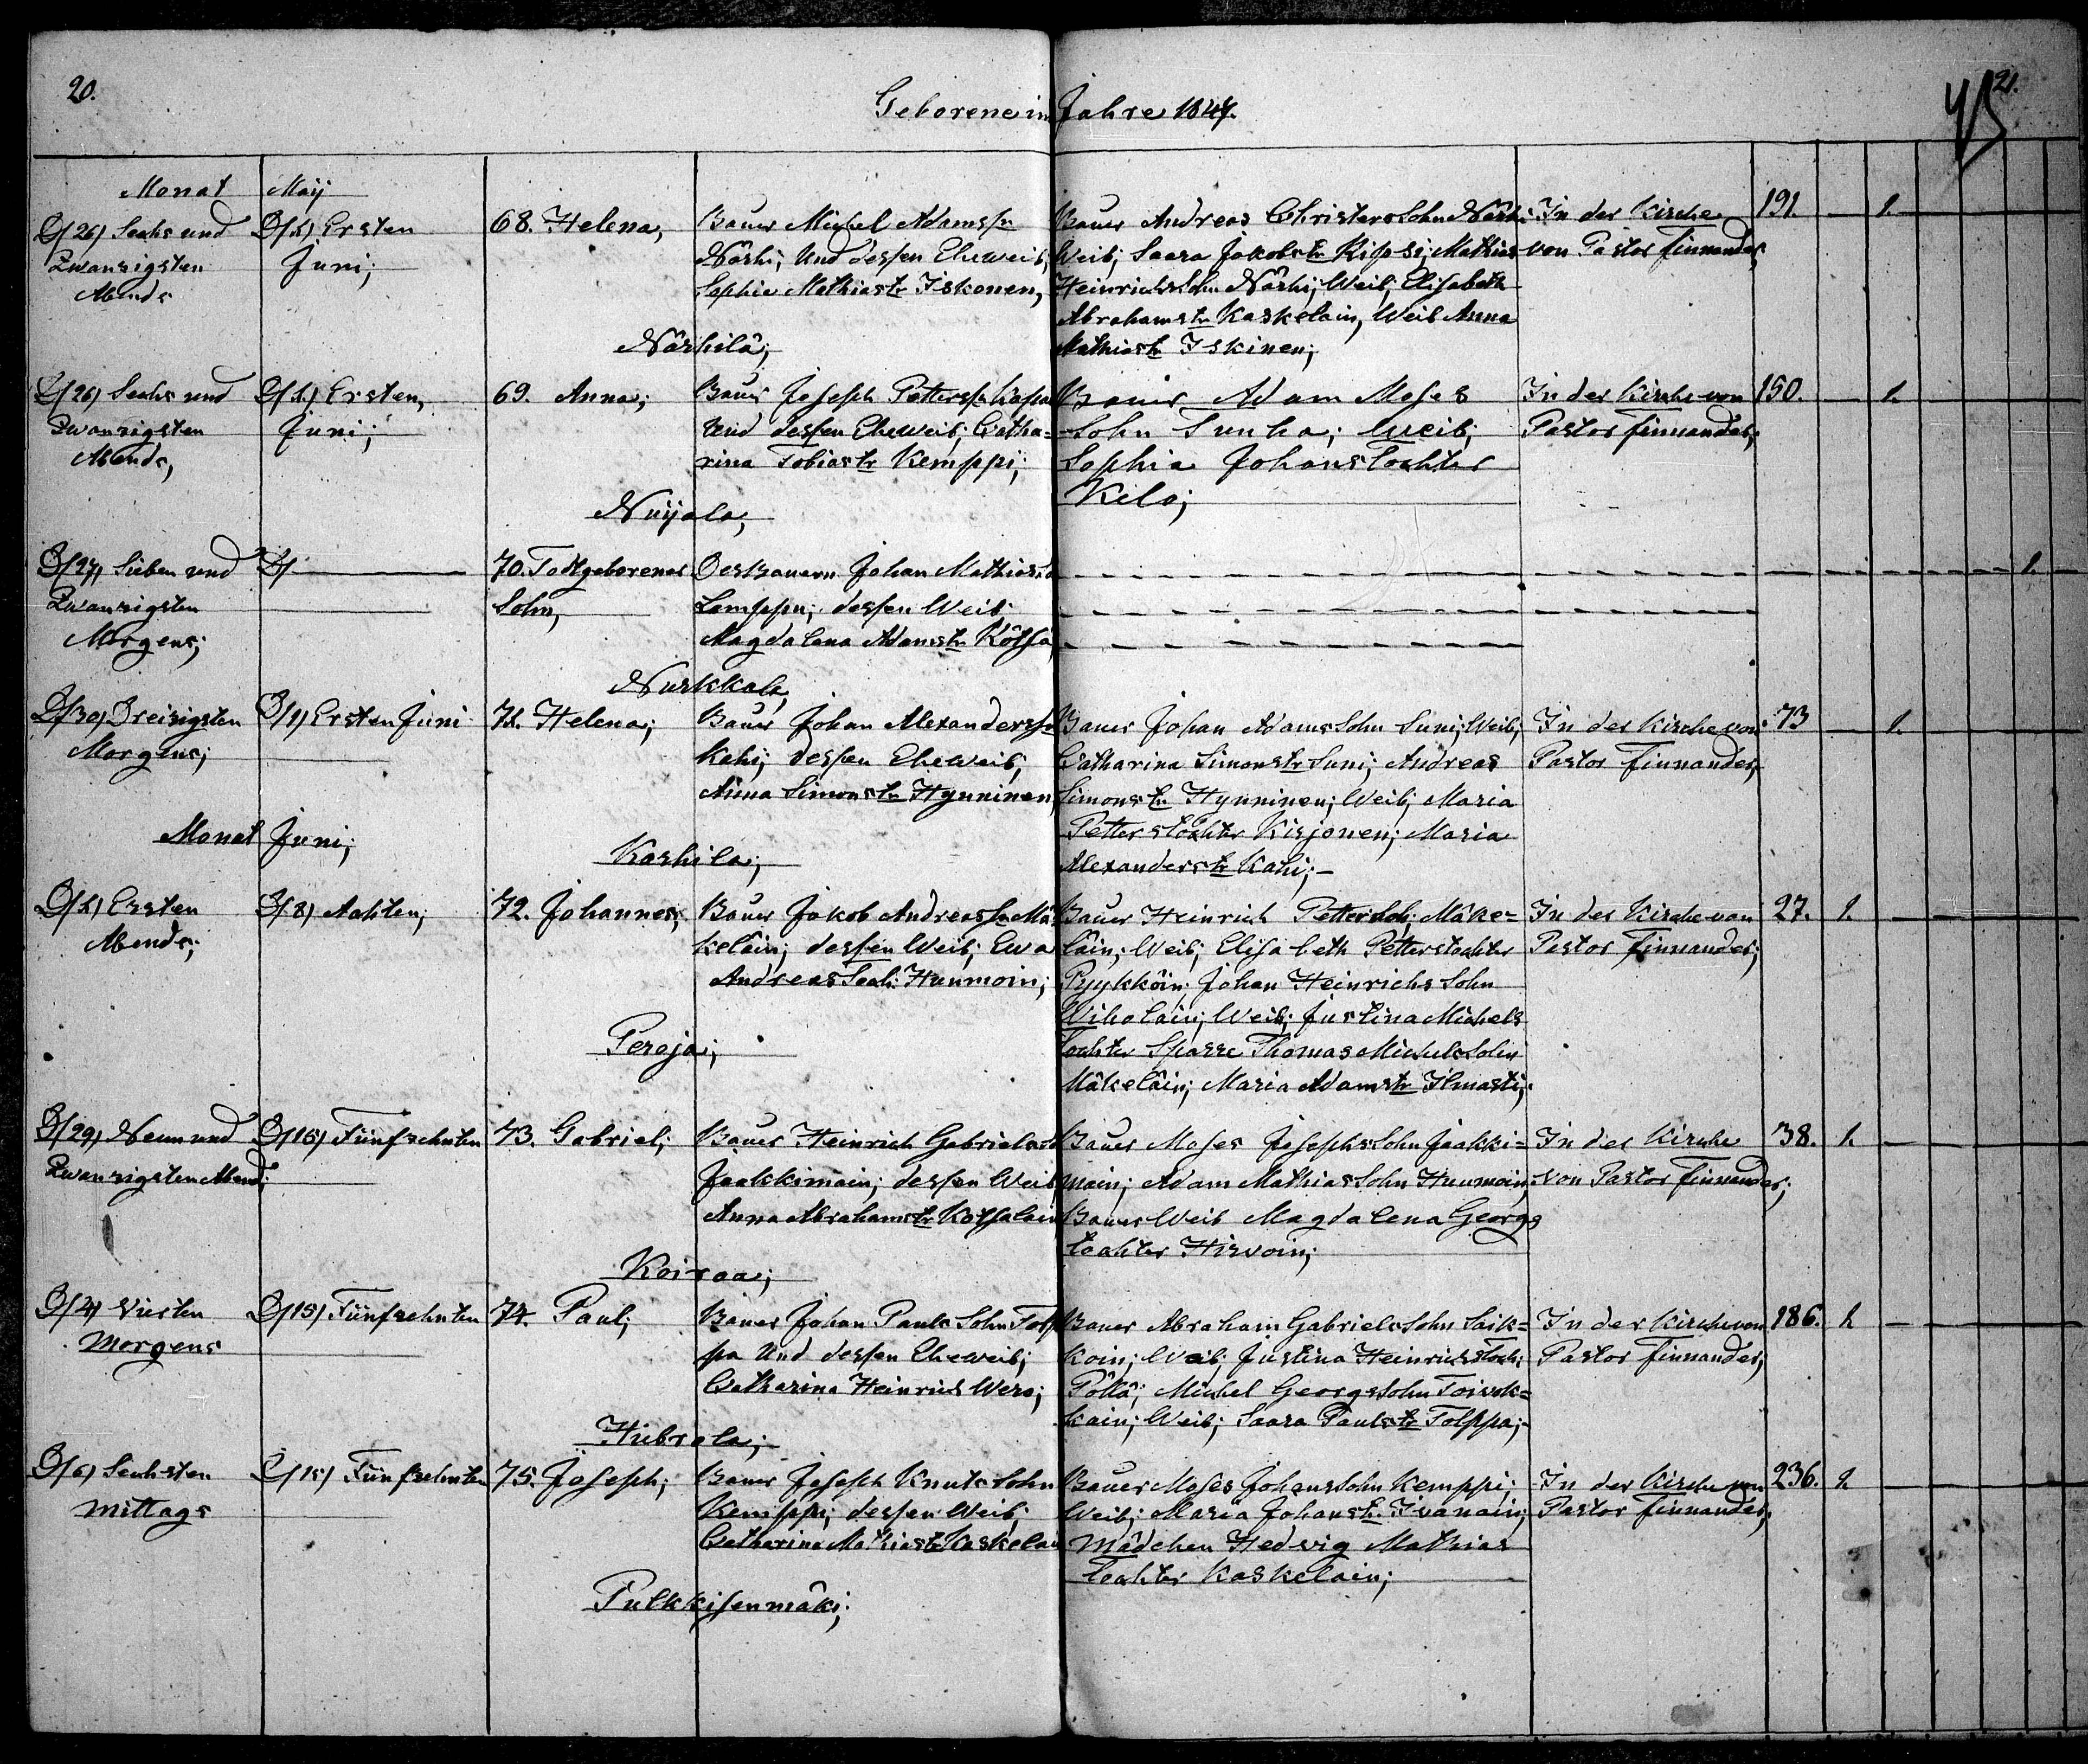 20.
21.
Geborene im Jahre 1847.
Monat May
D/26) Sechs und
Zwanzigsten
Abends
D/1.) Ersten
Juni;
68. Helena,
Bauer Michel Adamssn
Närhi; Und dessen Eheweib,
Sophia Mathiastr Iskonen,
Närhilä;
Bauer Andreas Christers Sohn Närhi
Weib; Saara Jakobstr Kipsi; Mathias
Heinrichs Sohn Närhi; Weib; Elisabeth
Abrahamstr Kaskelain, Weib Anna
Mathiastr Iskinen;
In der Kirche
von Pastor Finnander,
191. 1.
D/26) Sechs und
Zwanzigsten
Abends,
D/1.) Ersten,
Juni;
69. Anna;
Bauer Joseph Petterssn
Und dessen Eheweib; Catha=
rina Tobiastr Kemppi;
Nuijala,
Bauer Adam Moses
Sohn Sunha; Weib;
Sophia Johans Tochter
Kilo;
In der Kirche von
Pastor Finnander;
150. 1.
D/27) Sieben und
Zwanzigsten
Morgens;
D/
70. Todtgeborener
Sohn,
Des Bauern Johan Mathias So
Lamppu; dessen Weib
Magdalena Adamstr Kötsä,
Nurkkala,
1.
D/30) Dreisigsten
Morgens;
D/1) Ersten Juni
71. Helena;
Bauer Johan Alexanderssn
Kahi; dessen Eheweib;
Anna Simonstr Hynninen,
Karhila;
Bauer Johan Adams Sohn Suni; Weib;
Catharina Simonstr Suni; Andreas
Simons Hynninen; Weib; Maria
Petters tochter Kirjonen; Maria
Alexanderstr Kahi;-
In der Kirche von
Pastor Finnander,
73 1.
Monat Juni;
D/1.) Ersten
Abends;
D/8) Achten;
72. Johannes;
Bauer Jakob Andreas Mä
keläin; dessen Weib; Ewa
Andreas Toch: Hunmoin;
Peroja;
Bauer Heinrich Petters Soh; Mäke=
läin; Weib; Elisabeth Petterstochter
Pyykköin; Johan Heinrichs Sohn
Wiholain; Weib; Justina Michels
tochter Sparre Thomas Michels Sohn
Mäkeläin; Maria Adamstr Ilmasti;
In der Kirche von
Pastor Finnander;
27. 1.
D/29) Neun und
Zwanzigsten Abend;
D/15) Fünfzehnten
73. Gabriel;
Bauer Heinrich Gabriels So
Jaakkimain; dessen Weib
Anna Abrahamstr Kotsalain
Koiraa;
Bauer Moses Josephs Sohn Jaakki=
main; Adam Mathias Sohn Hunmoin;
Bauer Weib Magdalena Georgs
tochter Hirvoin;
In der Kirche
von Pastor Finnander;
38. 1.
D/4) Vierten
Morgens
D/15) Fünfzehnten
74. Paul;
Bauer Johan Pauls Sohn Tolp
pa Und dessen Eheweib;
Catharina Heinrich Wero;
Hubrola;
Bauer Abraham Gabriels Sohn Saik=
koin; Weib; Justina Heinrichs Toch:
Pöllä; Michel Georgs Sohn Toivok=
kain; Weib; Saara Paulstr Tolppa;-
In der Kirche von
Pastor Finnander;
186. 1.
D/6) Sechsten
Mittags
D/15) Fünfzehnten
75. Joseph;
Bauer Joseph Knuts Sohn
Kemppi; dessen Weib;
Catharina Mathiastr Kaskelain
Pulkkisenmäki;
Bauer Moses Johans Sohn Kemppi;
Weib; Maria Johanstr. Ivanain;
Mädchen Hedvig Mathias
Tochter Kaskelain;
In der Kirche von
Pastor Finnander,
236. 1.